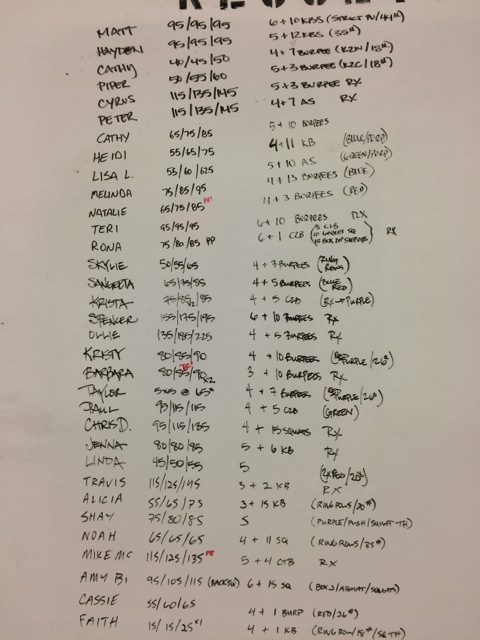 MATT 95/95/95 6+10 KBS (STRICT PU/44#)
HAYDEN 95/95/95 5+12 KBS (35#)
CATHY 40/45/50 4+7 BURPEE (18#)
PIPER 50/55/60 5+3 BURPEE (18#)
CYRUS 115/135/145 5+3 BURPEE RX
PETER 115/135/145 4+7 AS RX
CATHY 65/75/85 5+10 BURPEES
HEIDI 55/65/75 4+11 KB (BLUE/PURP)
LISA L. 55/60/625 5+10 AS (GREEN/PURP)
MELINDA 75/85/95 4+13 BURPEES (BLUE)
NATALIE 65/75/85 PR 4+3 BURPEES (RED)
TERI 95/95/95 6+10 BURPEES RX
RONA 75/80/85 PP 6+1 C2B RX
SKYLIE 50/55/65 4+7 BURPEES (RING ROWS)
SANGEETA 65/75/85 4+5 BURPEES (BLUE RED)
KRISTA 4+5 C2B (RX→PURPLE)
SPENCER 155/175/195 6+10 BURPEES RX
OLLIE 135/185/225 4+5 BURPEES RX
KRISTY 80/85/90 4+10 BURPEES
BARBARA 80/85/90 x2 3+10 BURPEES RX
TAYLOR 5x5 @ 65# 4+7 BURPEES
PAUL 95/115/115 4+5 C2B (GREEN)
CHRIS D. 95/115/135 4+15 SQUATS RX
JENNA 80/80/85 5+6 KB RX
LINDA 45/50/55 5
TRAVIS 115/125/145 3+2 KB RX
ALICIA 55/65/75 3+15 KB (RING ROWS/20#)
SHAY 75/80/85 5
NOAH 65/65/65 4+11 SQ (RING ROWS/35#)
MIKE MC 115/125/135 PR 5+4 CTB RX
AMY BI 95/105/115 (BACKSQ) 6+15 SQ (BOX J/ABMAT/SQUATS)
CASSIE 55/60/65 4+1 BURP (RED/26#)
FAITH 15/15/25 x1 4+1 KB